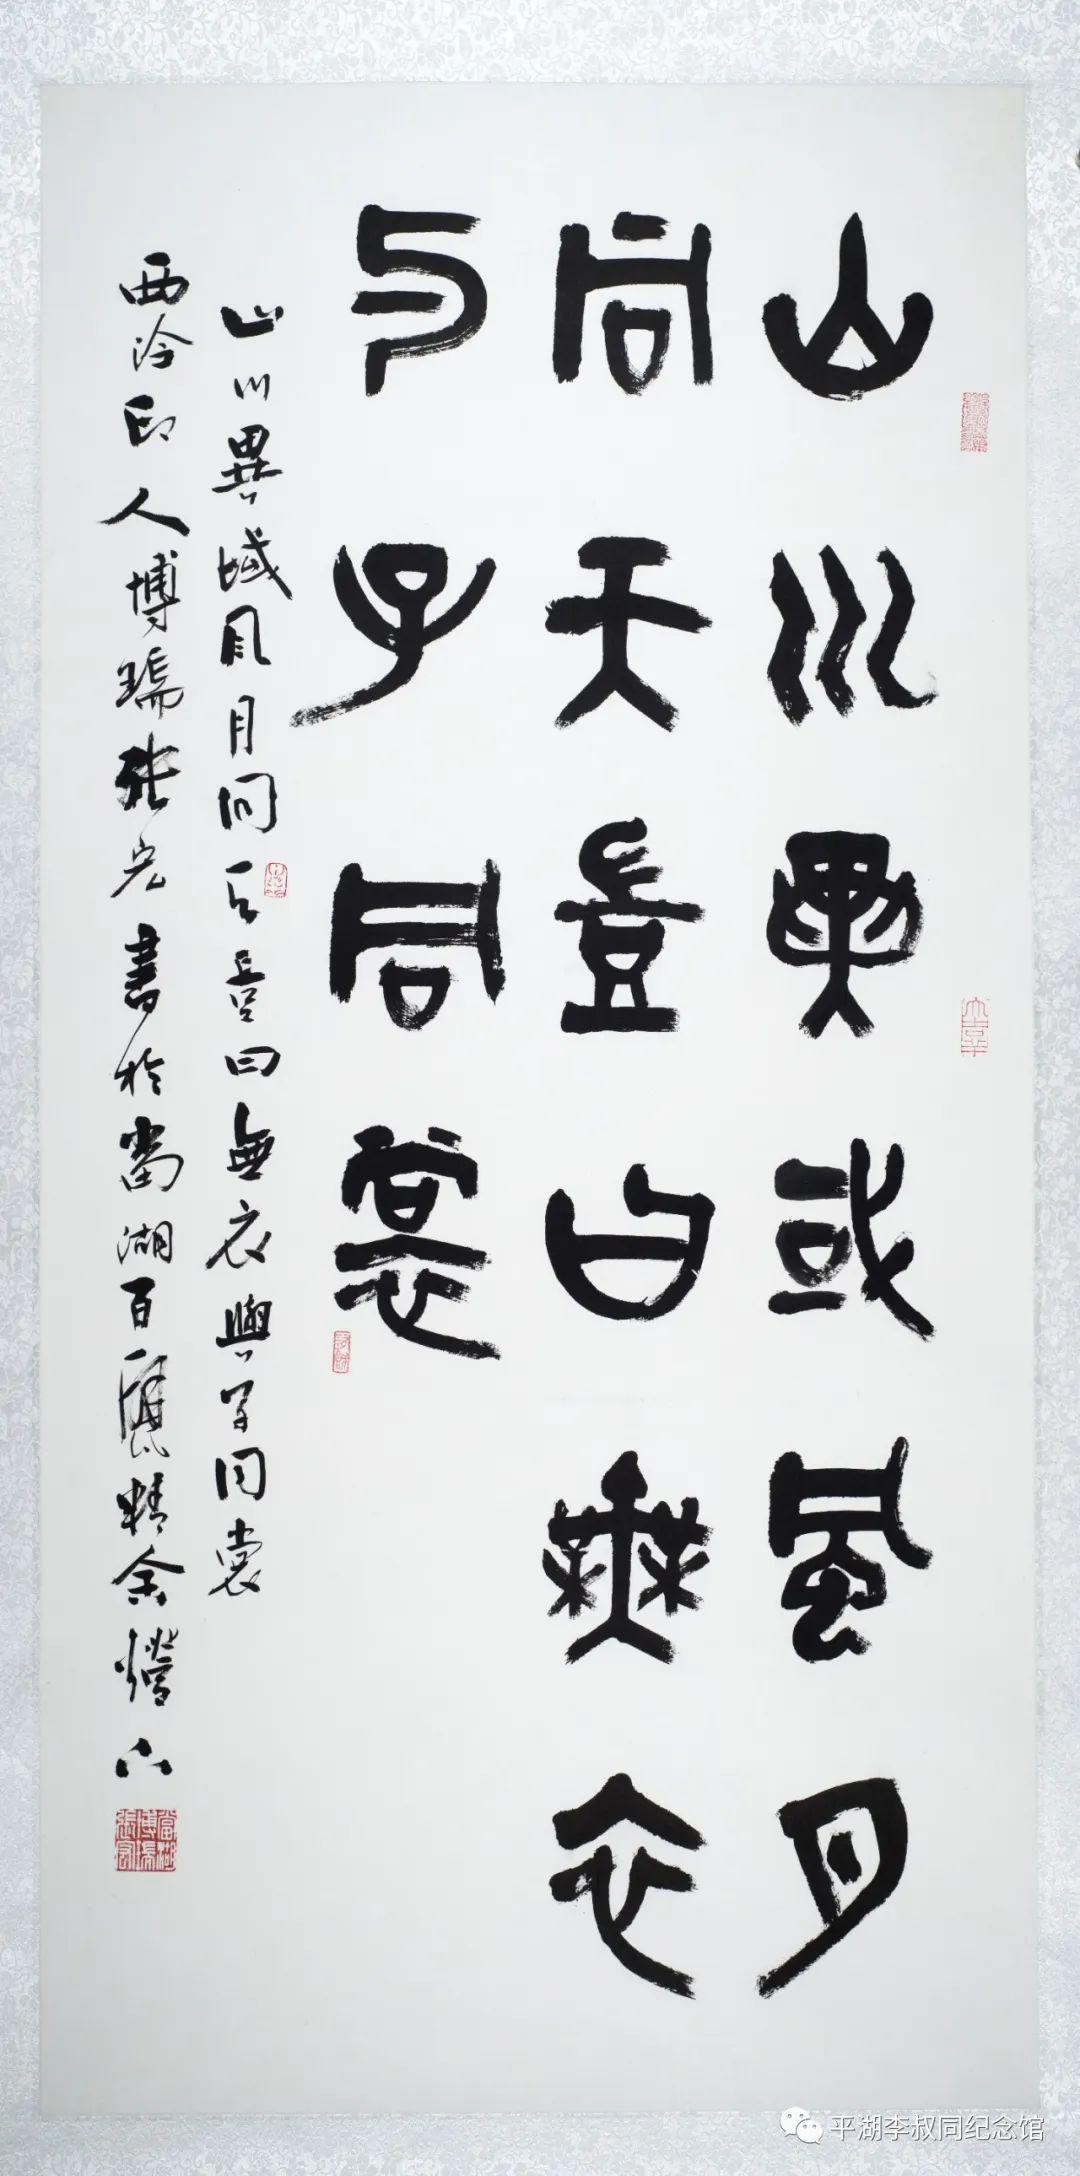 山川異或風月
同天豈曰無衣
与子同裳
山川異域風月同天豈曰無衣與子同裳
西泠印人博瑞張宏書於當湖百精舍燈下
平湖李叔同纪念馆